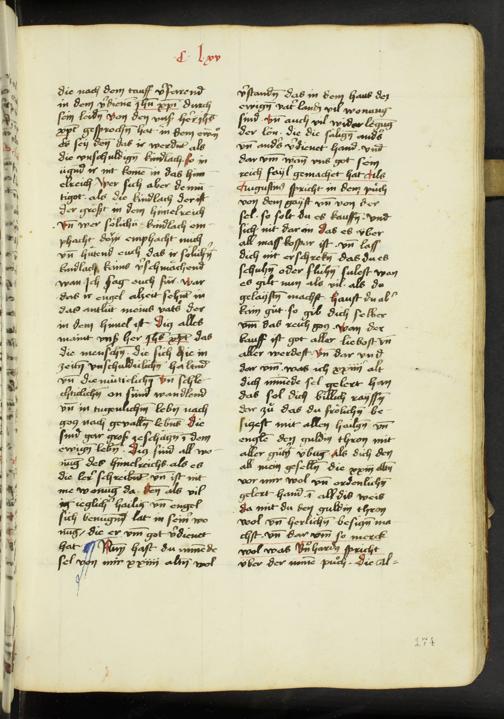 C lxv
die nach dem tauff v̄serend
in dem v̄diene ih̄u xp̄i durch
sein leidn̄ von den unß her ih̄s
xp̄s gesprochn̄ hat in dem ewn̄
es sey den das ir werdnt als
die unschuldign̄ kindlach so in
mügnd ir nit kome in das him
elreich Wer sich aber demü
tigot als die kindlach der ist
der gröst in dem himelreich
Vn̄ wer sölichn̄ kindlach em
phacht der emphacht mich
vn̄ hütend euch das ir sölichn̄
kindlach kains v̄schmachend
wan ich sag euch für war
das ir engel alzeit sehn̄ in
das antlüt meins vats der
in dem himel ist Dis alles
maint unß her ih̄s xp̄s das
die menschn̄ die sich hie in
zeitn̄ unschuldichn̄ haltend
vn̄ diemüticlichn̄ vn̄ schle
chticlichn̄ on sünd wandlend
vn̄ in tugenlichm̄ lebn̄ nach
gog nach gevalln̄ lebns die
sind gar groß geschäczn̄ i dem
ewign̄ lebn̄ Dis sind all wo
nug des himelreichs als es
die lerer schreibnt vn̄ ist nit
me wonug da den als vil
in ieglich hailig vn̄ engel
sich benugn̄ lat in sein wo
nug die er vm got v̄dienet
hat Nun hast du minnede
sel von mir xxiiii altn̄ wol
v̄standn̄ das in dem haus des
ewign̄ vat̄ landn̄ vil wonug
sind vn̄ auch vil widerlegug
der lön die die salign̄ ands
vn̄ ands v̄dienet hand vnd
dar vm wan uns got sein
reich fayl gemachet hat Als
Augustin̄ spricht in dem püch
von dem gayst vn̄ von der
sel so solt du es kauffn̄ vnd
sich nit dar in das es über
all mass kospar ist vn̄ lass
dich nit erschrekn̄ das du es
schuhn̄ oder fliehn̄ sülest wan
es gilt nun als vil als du
gelaystn̄ machst haust du ab
kain güt so gib dich selber
vm das reich gog Wan der
kauff ist got aller liebost vn̄
aller werdest Vn̄ dar vnd
dar vm was ich xxiiii alt
dich minnede sel gelert han
das sol dich billich rayssn̄
dar zü das du frölichn̄ be
siczest mit allen hailign̄ vn̄
engln̄ den guldin thron mit
aller gütn̄ übug Als dich den
all mein geselln̄ die xxiii altn̄
vor mir wol vn̄ ordenlichn̄
gelert hand i all dis weis
da mit du den guldin thron
wol vn̄ herlichn̄ besiczn̄ ma
chst vn̄ dar vm so merck
wol was Bn̄hardn̄ spricht
über der mine püch Die al=
174